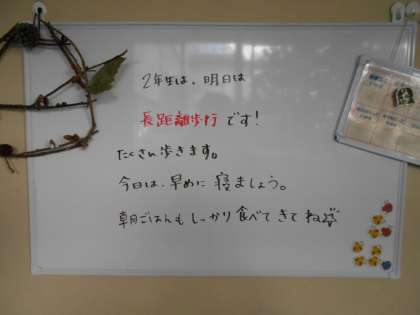 2年生は、明日は
長距離歩行です!
たくさん歩きます。
今日は、早めに寝ましょう。
朝ごはんもしっかり食べてきてね